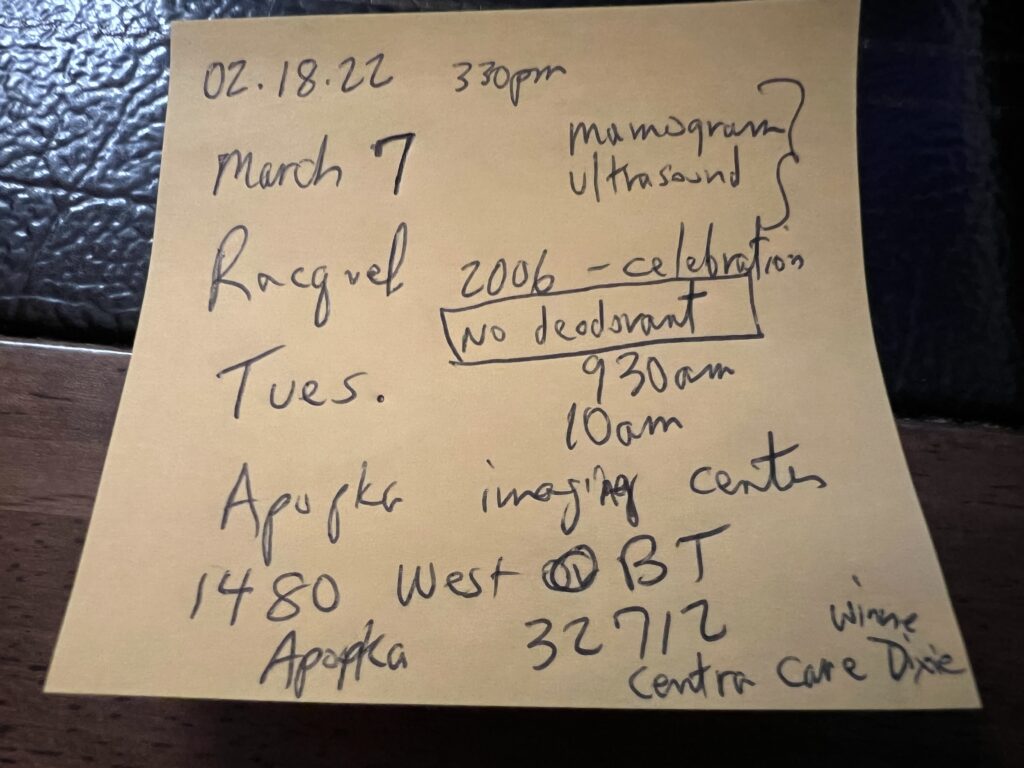 02.18.22 330pm
March 7 mamogram
ultrasound
Racquel 2006 - celebration
No deodorant
Tues. 930am
10am
Apopka imaging center
1480 West OBT
Apopka 32712
Winne
Centra Care Dixie